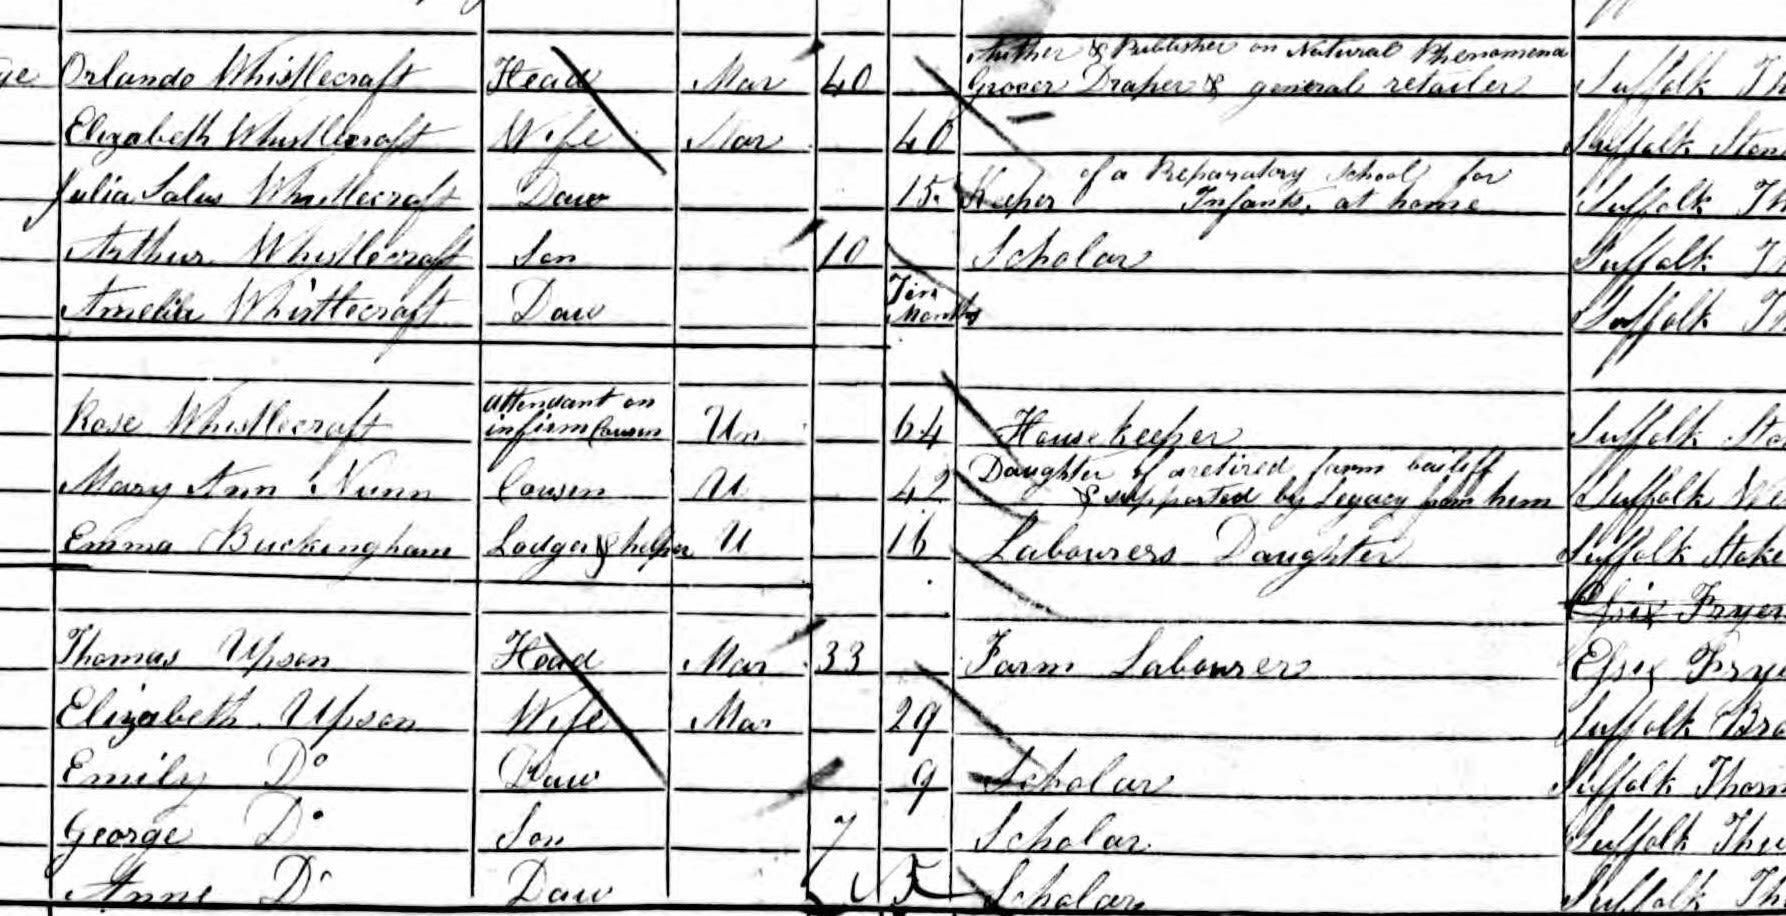 Author & Publisher on Natural Phenomena
Orlando Whistlecraft Head Mar 40 Grocer Draper & general retailer Suffolk Th
Elizabeth Whistlecraft Wife Mar 40 Suffolk
of a Preparatory School for
Julia Whistlecraft Daur 15 Keeper Infants, at home Suffolk Th
Arthur Whistlecraft Son 10 Scholar Suffolk Th
Ten
Amelia Whistlecraft Daur Months Suffolk Th
attendant on
Rose Whistlecraft infirm Cousin Un 64 Housekeeper Suffolk
Daughter of a retired farm bailiff
Mary Ann Nunn Cousin U 42 & supported by Legacy from him Suffolk
Emma Buckingham Lodger & helper U 16 Labourers Daughter Suffolk Stoke
Essex Fryer
Thomas Upson Head Mar 33 Farm Labourer Essex Frye
Elizabeth Upson Wife Mar 29 Suffolk Bra
Emily Do Daur 9 Scholar Suffolk Thorn
George Do Son 7 Scholar Suffolk
Anne Do Daur 5 Scholar Suffolk Th